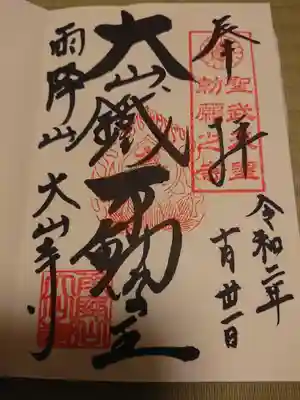 奉拝
聖武天皇
勅願之寺
令和二年
十月廿一日
大山鐵不動尊
雨降山 大山寺